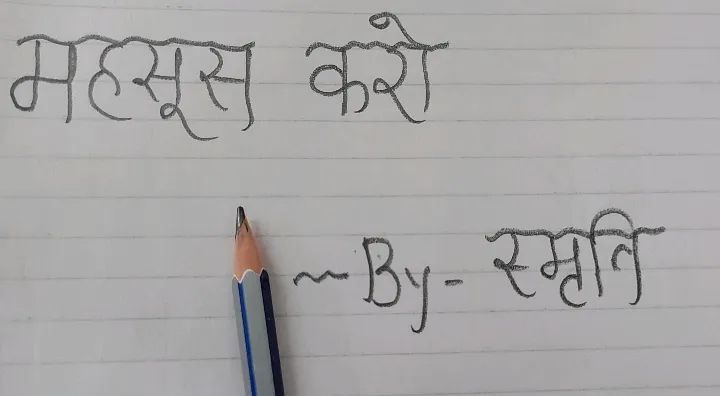 महसूस करो
~ By - स्मृति